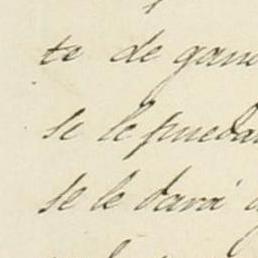 te de gana
se le puedan
se le dará